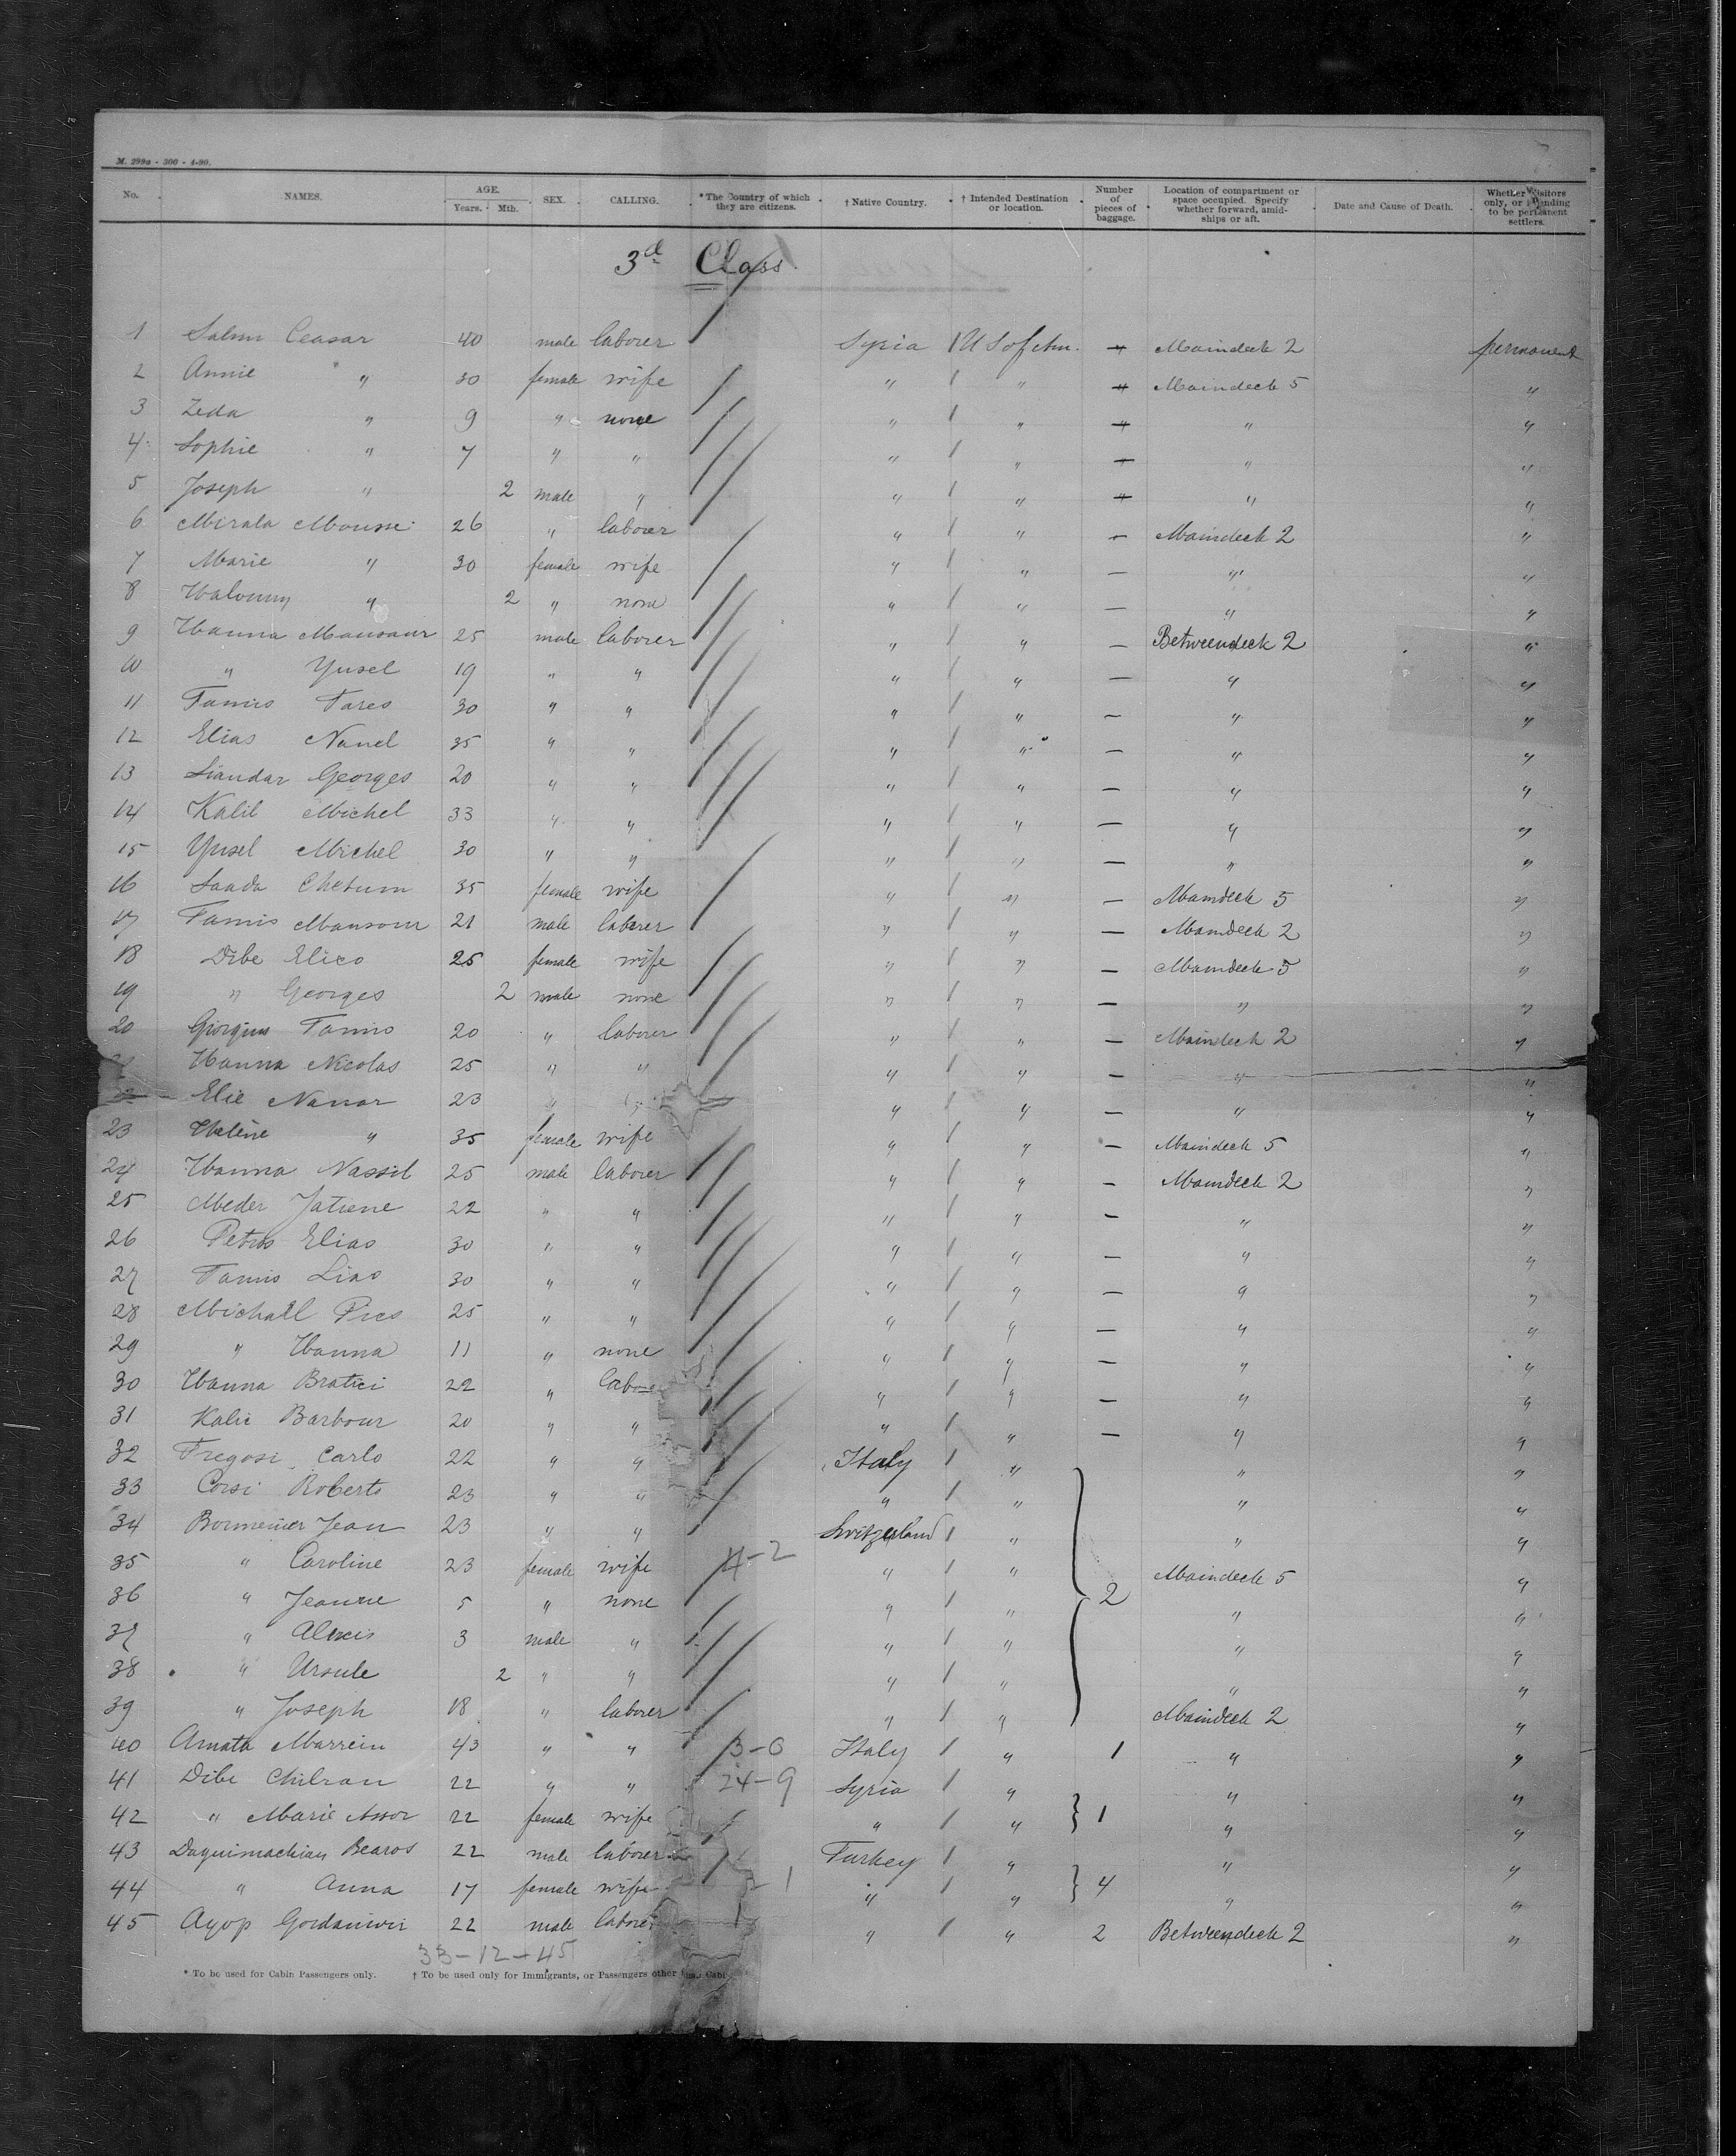 M. 299a - 300 - 4-90.
No. NAMES. AGE. Years. Mth. SEX. CALLING. * The Country of which they are citizens. † Native Country. † Intended Destination or location. Number of pieces of baggage. Location of compartment or space occupied. Specify whether forward, amidships or aft. Date and Cause of Death. Whether Visitors only, or intending to be permanent settlers.
3d Class.
1 Salim Ceasar 40 male laborer Syria U S of Am. Maindeck 2 permanent
2 Annie " 30 female wife " " Maindeck 5 "
3 Zeda " 9 " none " " " "
4 Sophie " 7 " " " " " "
5 Joseph " 2 male " " " " "
6 Mirala Mousse 26 " laborer " " — Maindeck 2 "
7 Marie " 30 female wife " " — " "
8 " 2 " none " " — " "
9 Hanna Mansour 25 male laborer " " — Betweendeck 2 "
10 " Yusel 19 " " " " — " "
11 Tanus Fares 30 " " " " — " "
12 Elias Nanel 35 " " " " — " "
13 Siandar Georges 20 " " " " — " "
14 Kalil Michel 33 " " " " — " "
15 Yusel Michel 30 " " " " — " "
16 Saada Chetum 35 female wife " " — Maindeck 5 "
17 Tanus Mansour 21 male laborer " " — Maindeck 2 "
18 Dibe Elico 25 female wife " " — Maindeck 5 "
19 " Georges 2 male none " " — " "
20 Giorgius Tanus 20 " laborer " " — Maindeck 2 "
Hanna Nicolas 25 " " " " — " "
Elie Nanar 23 " " " " — " "
23 Helene " 35 female wife " " — Maindeck 5 "
24 Hanna Nassif 25 male laborer " " — Maindeck 2 "
25 Meder Jatiene 22 " " " " — " "
26 Petros Elias 30 " " " " — " "
27 Tanus Lias 30 " " " " — " "
28 Michall Pies 25 " " " " — " "
29 " Hanna 11 " none " " — " "
30 Hanna Bratici 22 " laborer " " — " "
31 Kalie Barbour 20 " " " " — " "
32 Fregosi Carlo 22 " " Italy " " "
33 Corsi Roberto 23 " " " " " "
34 Bormenier Jean 23 " " Switzerland " " "
35 " Caroline 23 female wife 4-2 " " Maindeck 5 "
36 " Jeanne 5 " none " " 2 " "
37 " Alexis 3 male " " " " "
38 " Ursule 2 " " " " " "
39 " Joseph 18 " laborer " " Maindeck 2 "
40 Amata Marrein 43 " " 3-0 Italy " 1 " "
41 Dibe Chilran 22 " " 24-9 Syria " " "
42 " Marie Assor 22 female wife " " 1 " "
43 Daguimachian Bearos 22 male laborer Turkey " " "
44 " Anna 17 female wife 1 " " 4 " "
45 Ayop Gordaniwir 22 male laborer " " 2 Betweendeck 2 "
33-12-45
* To be used for Cabin Passengers only. † To be used only for Immigrants, or Passengers other than Cabi